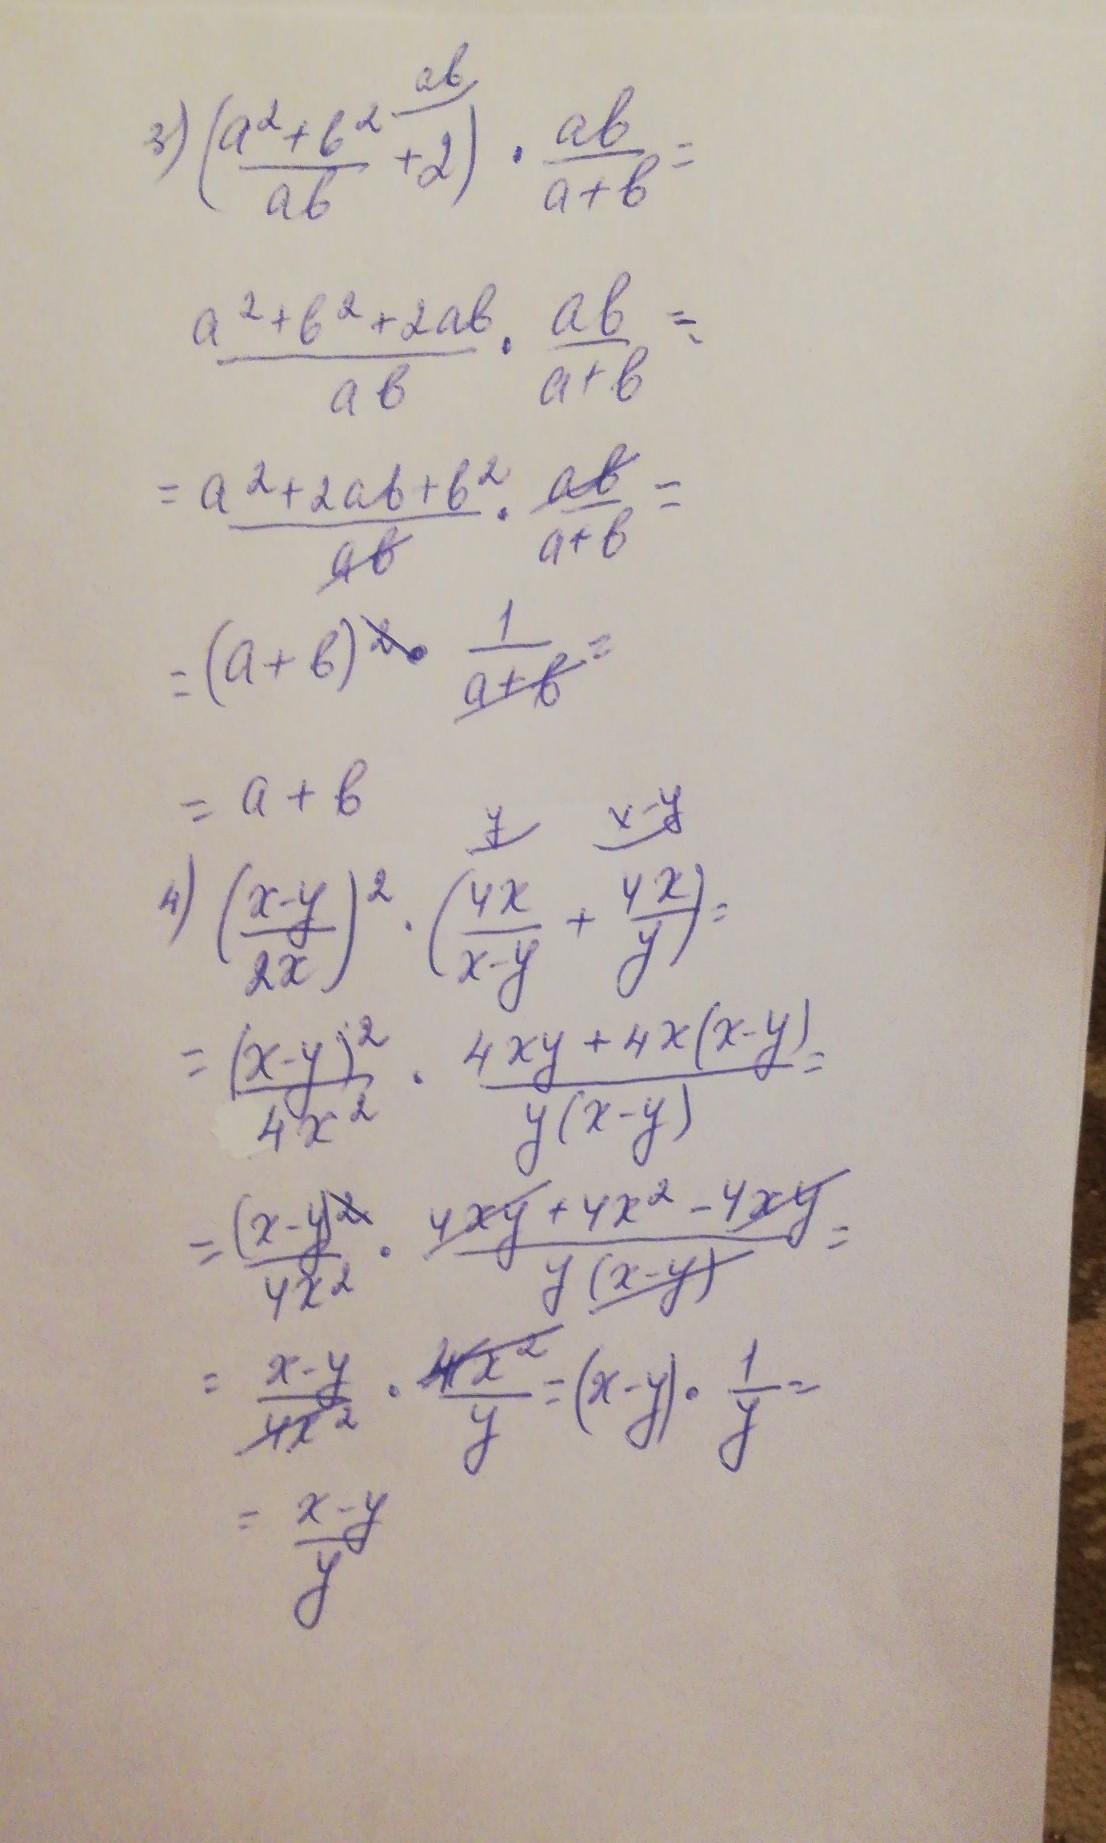 3) (a²+b²/ab + 2)^ab · ab/a+b =
a²+b²+2ab/ab · ab/a+b =
= a²+2ab+b²/ab · ab/a+b =
= (a+b)² · 1/a+b =
= a+b
4) (x-y/2x)² · (4x/x-y^y + 4x/y^x-y) =
= (x-y)²/4x² · 4xy+4x(x-y)/y(x-y) =
= (x-y)²/4x² · 4xy+4x²-4xy/y(x-y) =
= x-y/4x² · 4x²/y = (x-y) · 1/y =
= x-y/y